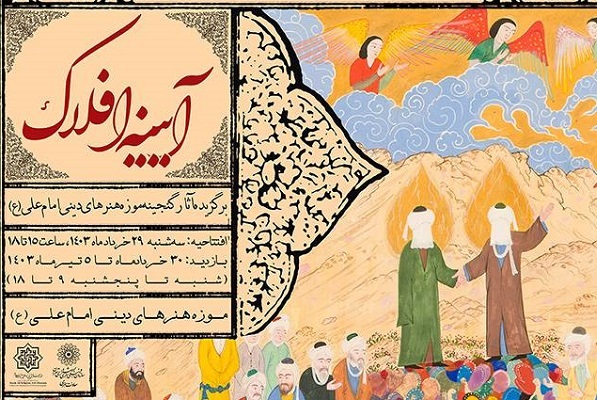 آیینه افلاک
برگزیده آثار گنجینه موزه هنرهای دینی امام علی (ع)
افتتاحیه: سه‌شنبه ۲۹ خردادماه ۱۴۰۳، ساعت ۱۵ تا ۱۸
بازدید: ۳۰ خردادماه تا ۵ تیرماه ۱۴۰۳
(شنبه تا پنجشنبه ۹ تا ۱۸)
موزه هنرهای دینی امام علی (ع)